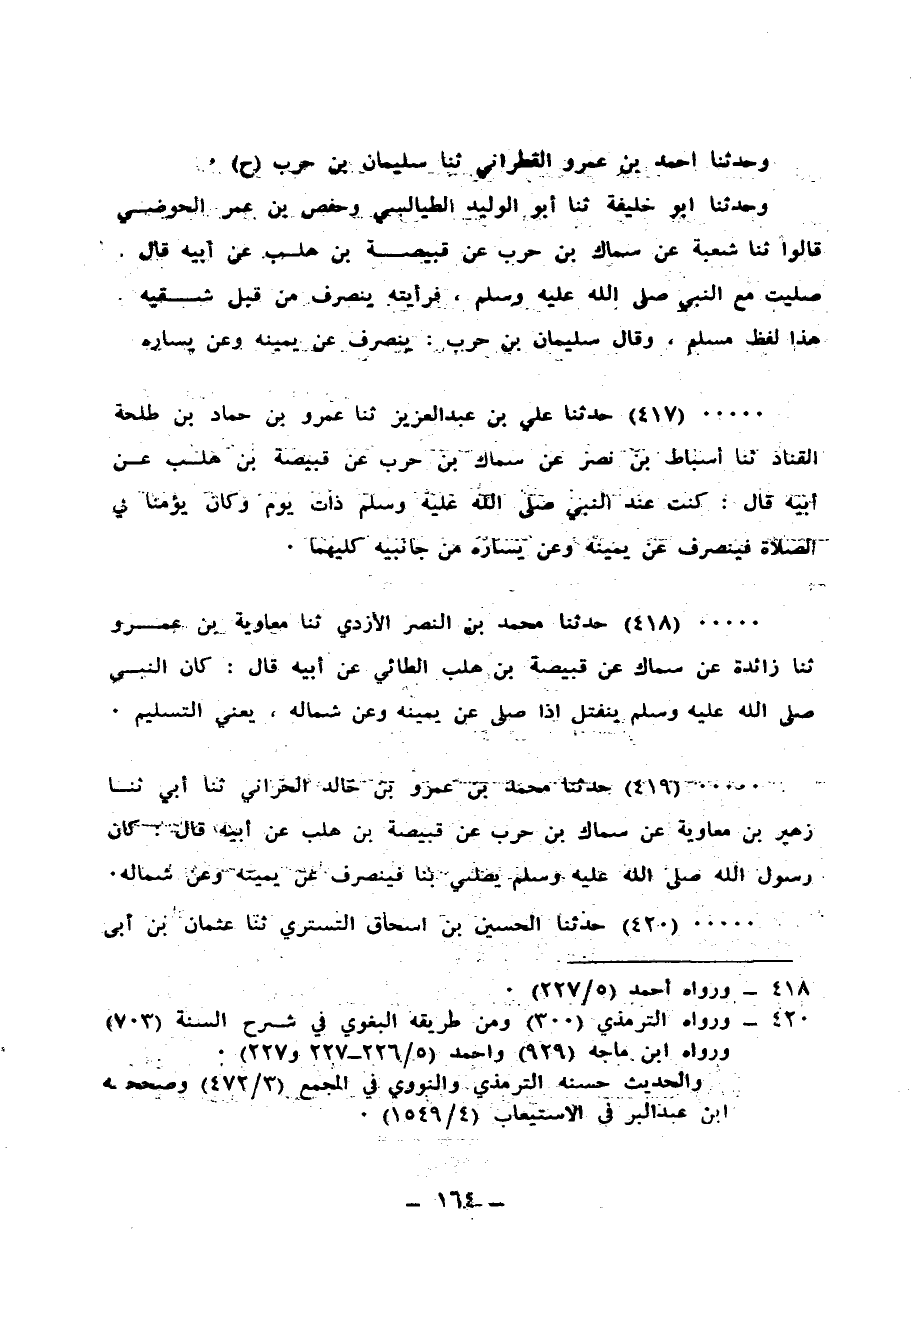 وحدثنا احمد بن عمرو القطراني ثنا سليمان بن حرب (ح) ٠
وحدثنا ابو خليفة ثنا أبو الوليد الطيالسي وحفص بن عمر الحوضي
قالوا ثنا شعبة عن سماك بن حرب عن قبيصة بن هلب عن أبيه قال ٠
صليت مع النبي صلى الله عليه وسلم ، فرأيته ينصرف من قبل شقيه ٠
هذا لفظ مسلم ، وقال سليمان بن حرب : ينصرف عن يمينه وعن يساره
٠٠٠٠٠ (٤١٧) حدثنا علي بن عبدالعزيز ثنا عمرو بن حماد بن طلحة
القناد ثنا أسباط بن نصر عن سماك بن حرب عن قبيصة بن هلب عن
أبيه قال : كنت عند النبي صلى الله عليه وسلم ذات يوم وكان يؤمنا في
الصلاة فينصرف عن يمينه وعن يساره من جانبيه كليهما ٠
٠٠٠٠٠ (٤١٨) حدثنا محمد بن النضر الأزدي ثنا معاوية بن عمرو
ثنا زائدة عن سماك عن قبيصة بن هلب الطائي عن أبيه قال : كان النبي
صلى الله عليه وسلم ينفتل اذا صلى عن يمينه وعن شماله ، يعني التسليم ٠
٠٠٠٠٠ (٤١٩) حدثنا محمد بن عمرو بن خالد الحراني ثنا أبي ثنا
زهير بن معاوية عن سماك بن حرب عن قبيصة بن هلب عن أبيه قال : كان
رسول الله صلى الله عليه وسلم يصلي بنا فينصرف عن يمينه وعن شماله ٠
٠٠٠٠٠ (٤٢٠) حدثنا الحسين بن اسحاق التستري ثنا عثمان بن أبى
٤١٨ ــ ورواه أحمد (٢٢٧/٥) ٠
٤٢٠ ــ ورواه الترمذي (٣٠٠) ومن طريقه البغوي في شرح السنة (٧٠٣)
ورواه ابن ماجه (٩٢٩) واحمد (٢٢٦/٥ــ٢٢٧ و٢٢٧) ٠
والحديث حسنه الترمذي والنووي في المجمع (٤٧٢/٣) وصححه
ابن عبدالبر فى الاستيعاب (١٥٤٩/٤) ٠
ــ ١٦٤ ــ